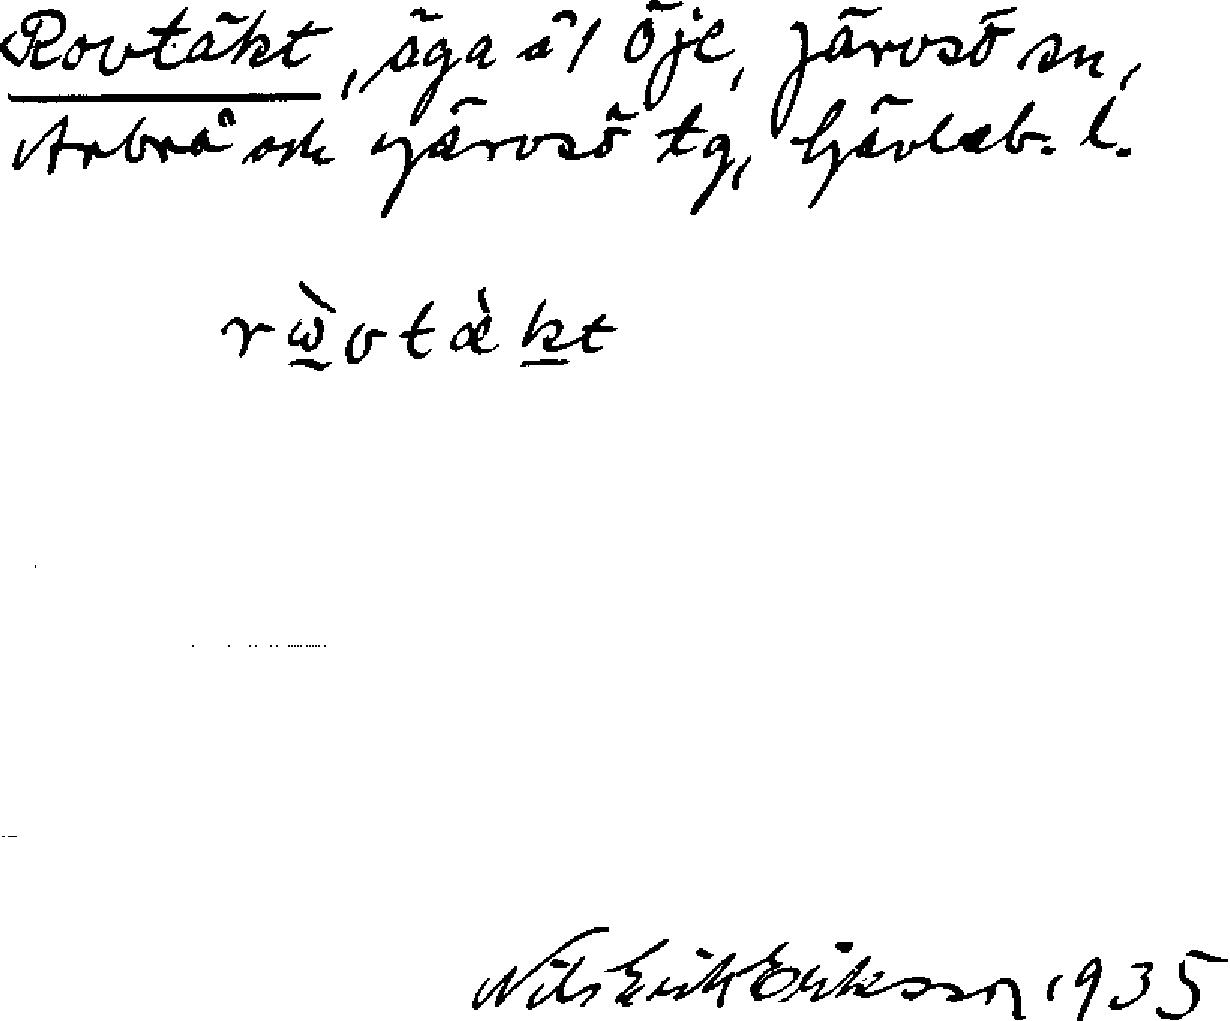 Rovtäkt, äga å 1 Öje, Järvsö sn,
Arbrå och Järvsö tg, Gävleb. l.
rὼvtæ̀kt
Nils Erik Eriksson 1935